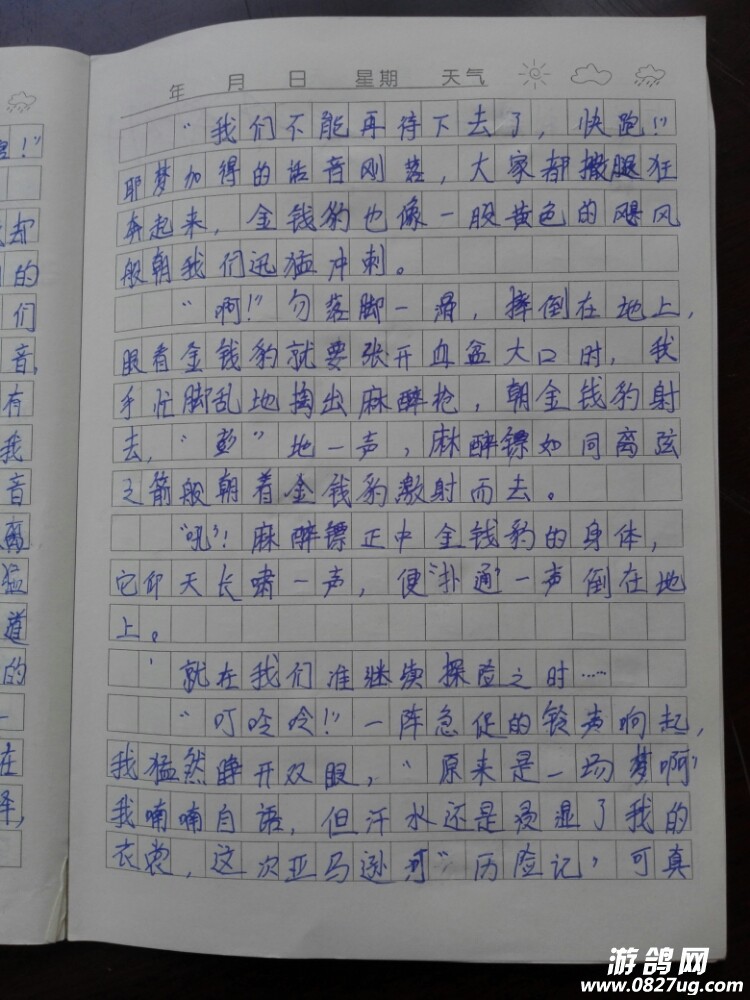 年 月 日 星期 天气
“我们不能再待下去了，快跑！”
耶梦加得的话音刚落，大家都撒腿狂
奔起来，金钱豹也像一股黄色的飓风
般朝我们迅猛冲刺。
“啊！”勿落脚一滑，摔倒在地上，
眼看金钱豹就要张开血盆大口时，我
手忙脚乱地掏出麻醉枪，朝金钱豹射
去，“彭”地一声，麻醉镖如同离弦
之箭般朝着金钱豹激射而去。
“吼”！麻醉镖正中金钱豹的身体，
它仰天长啸一声，便“扑通”一声倒在地
上。
就在我们准继续探险之时……
“叮呤呤！”一阵急促的铃声响起，
我猛然睁开双眼，“原来是一场梦啊”
我喃喃自语，但汗水还是浸湿了我的
衣裳，这次亚马逊河“历险记”可真
害！”
却
的
们
音，
有
我
音
离
猛
道
的
在
游鸽网
www.0827ug.com